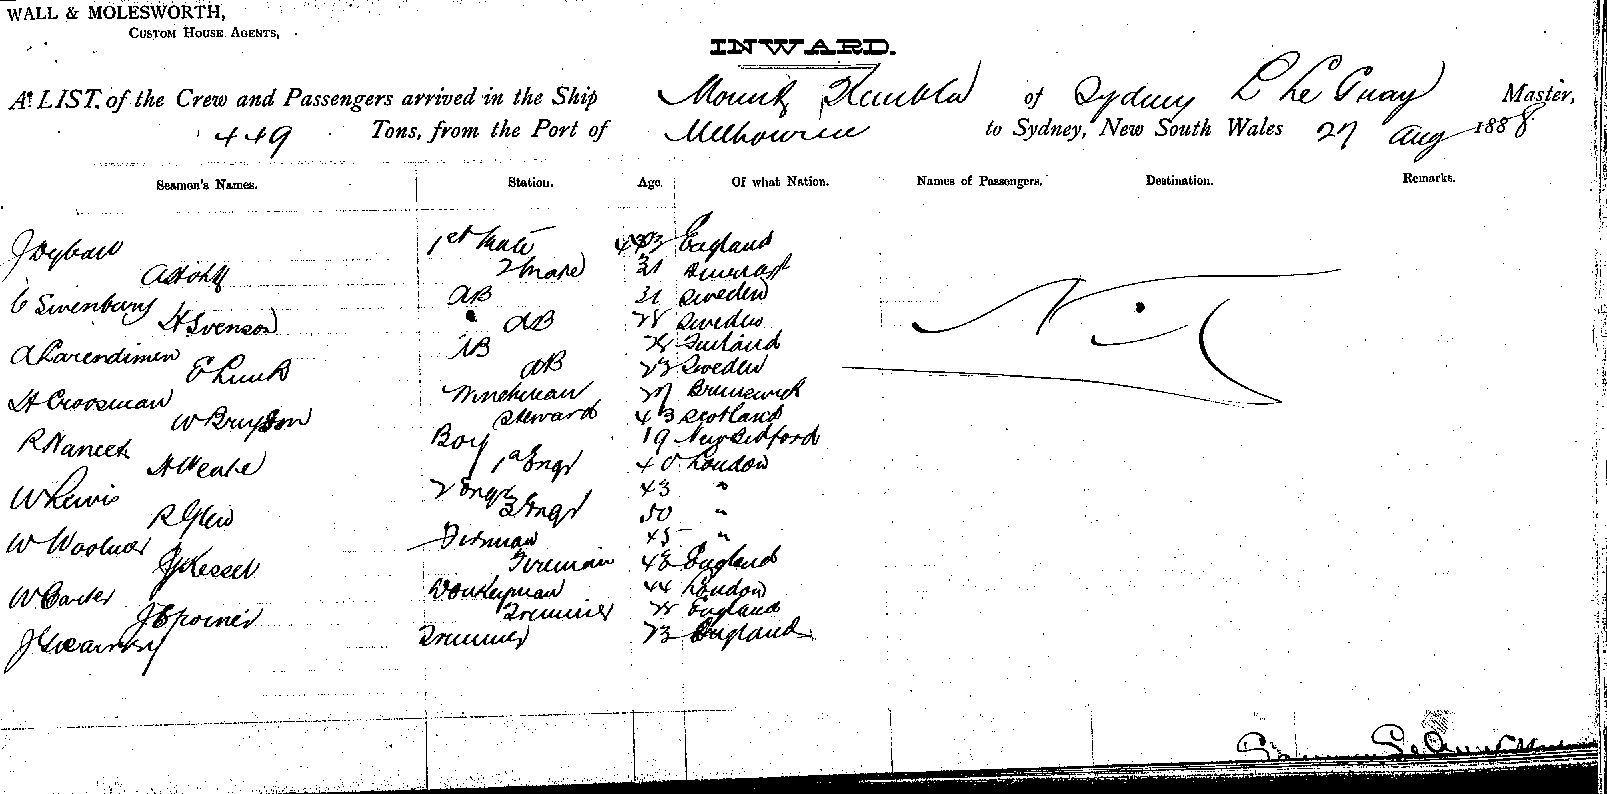 WALL & MOLESWORTH,
CUSTOM HOUSE AGENTS,
INWARD.
A LIST of the Crew and Passengers arrived in the Ship Mount Kembla of Sydney Master,
449 Tons, from the Port of Melbourne to Sydney, New South Wales 27 Aug 1888
Seamen's Names. Station. Age. Of what Nation. Names of Passengers. Destination. Remarks.
J Dyball 1st Mate England
2 Mate 31
AB 31 Sweden
H Svenson AB 28 Sweden
AB 28
AB 23 Sweden
H Croosman 27 Brunswick
Steward 43 Scotland
Boy 19 New Bedford
1st Engr 40 London
W Lewis 2 Engr 43 "
R Glew 3 Engr 50 "
W Woolner Fireman 45 "
J Kessell Fireman 43 England
W Carter Donkeyman 44 London
Trimmer 28 England
Trimmer 23 England
Nil